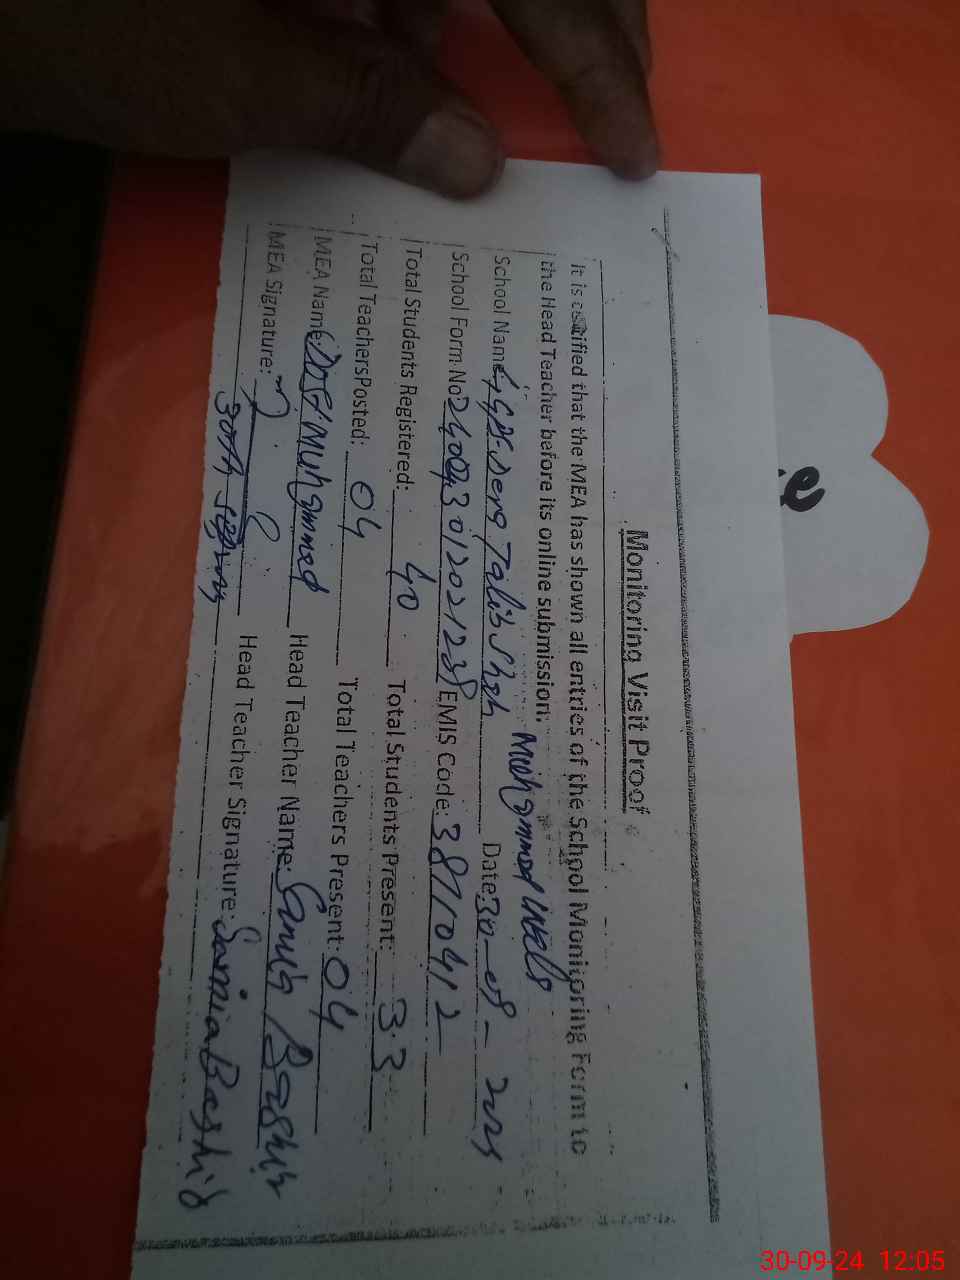 Monitoring Visit Proof
It is certified that the MEA has shown all entries of the School Monitoring Form to
the Head Teacher before its online submission.
School Name: GGPS. Dera Talib Shah Muhammad Date: 30-
School Form. No EMIS Code: 38710412
Total Students Registered: 40 Total Students Present: 33
Total Teachers Posted: 04 Total Teachers Present: 04
MEA Name: Dost Muhammed Head Teacher Name: Bashir
MEA Signature: Head Teacher Signature: Samia Bashir
30-09-24 12:05